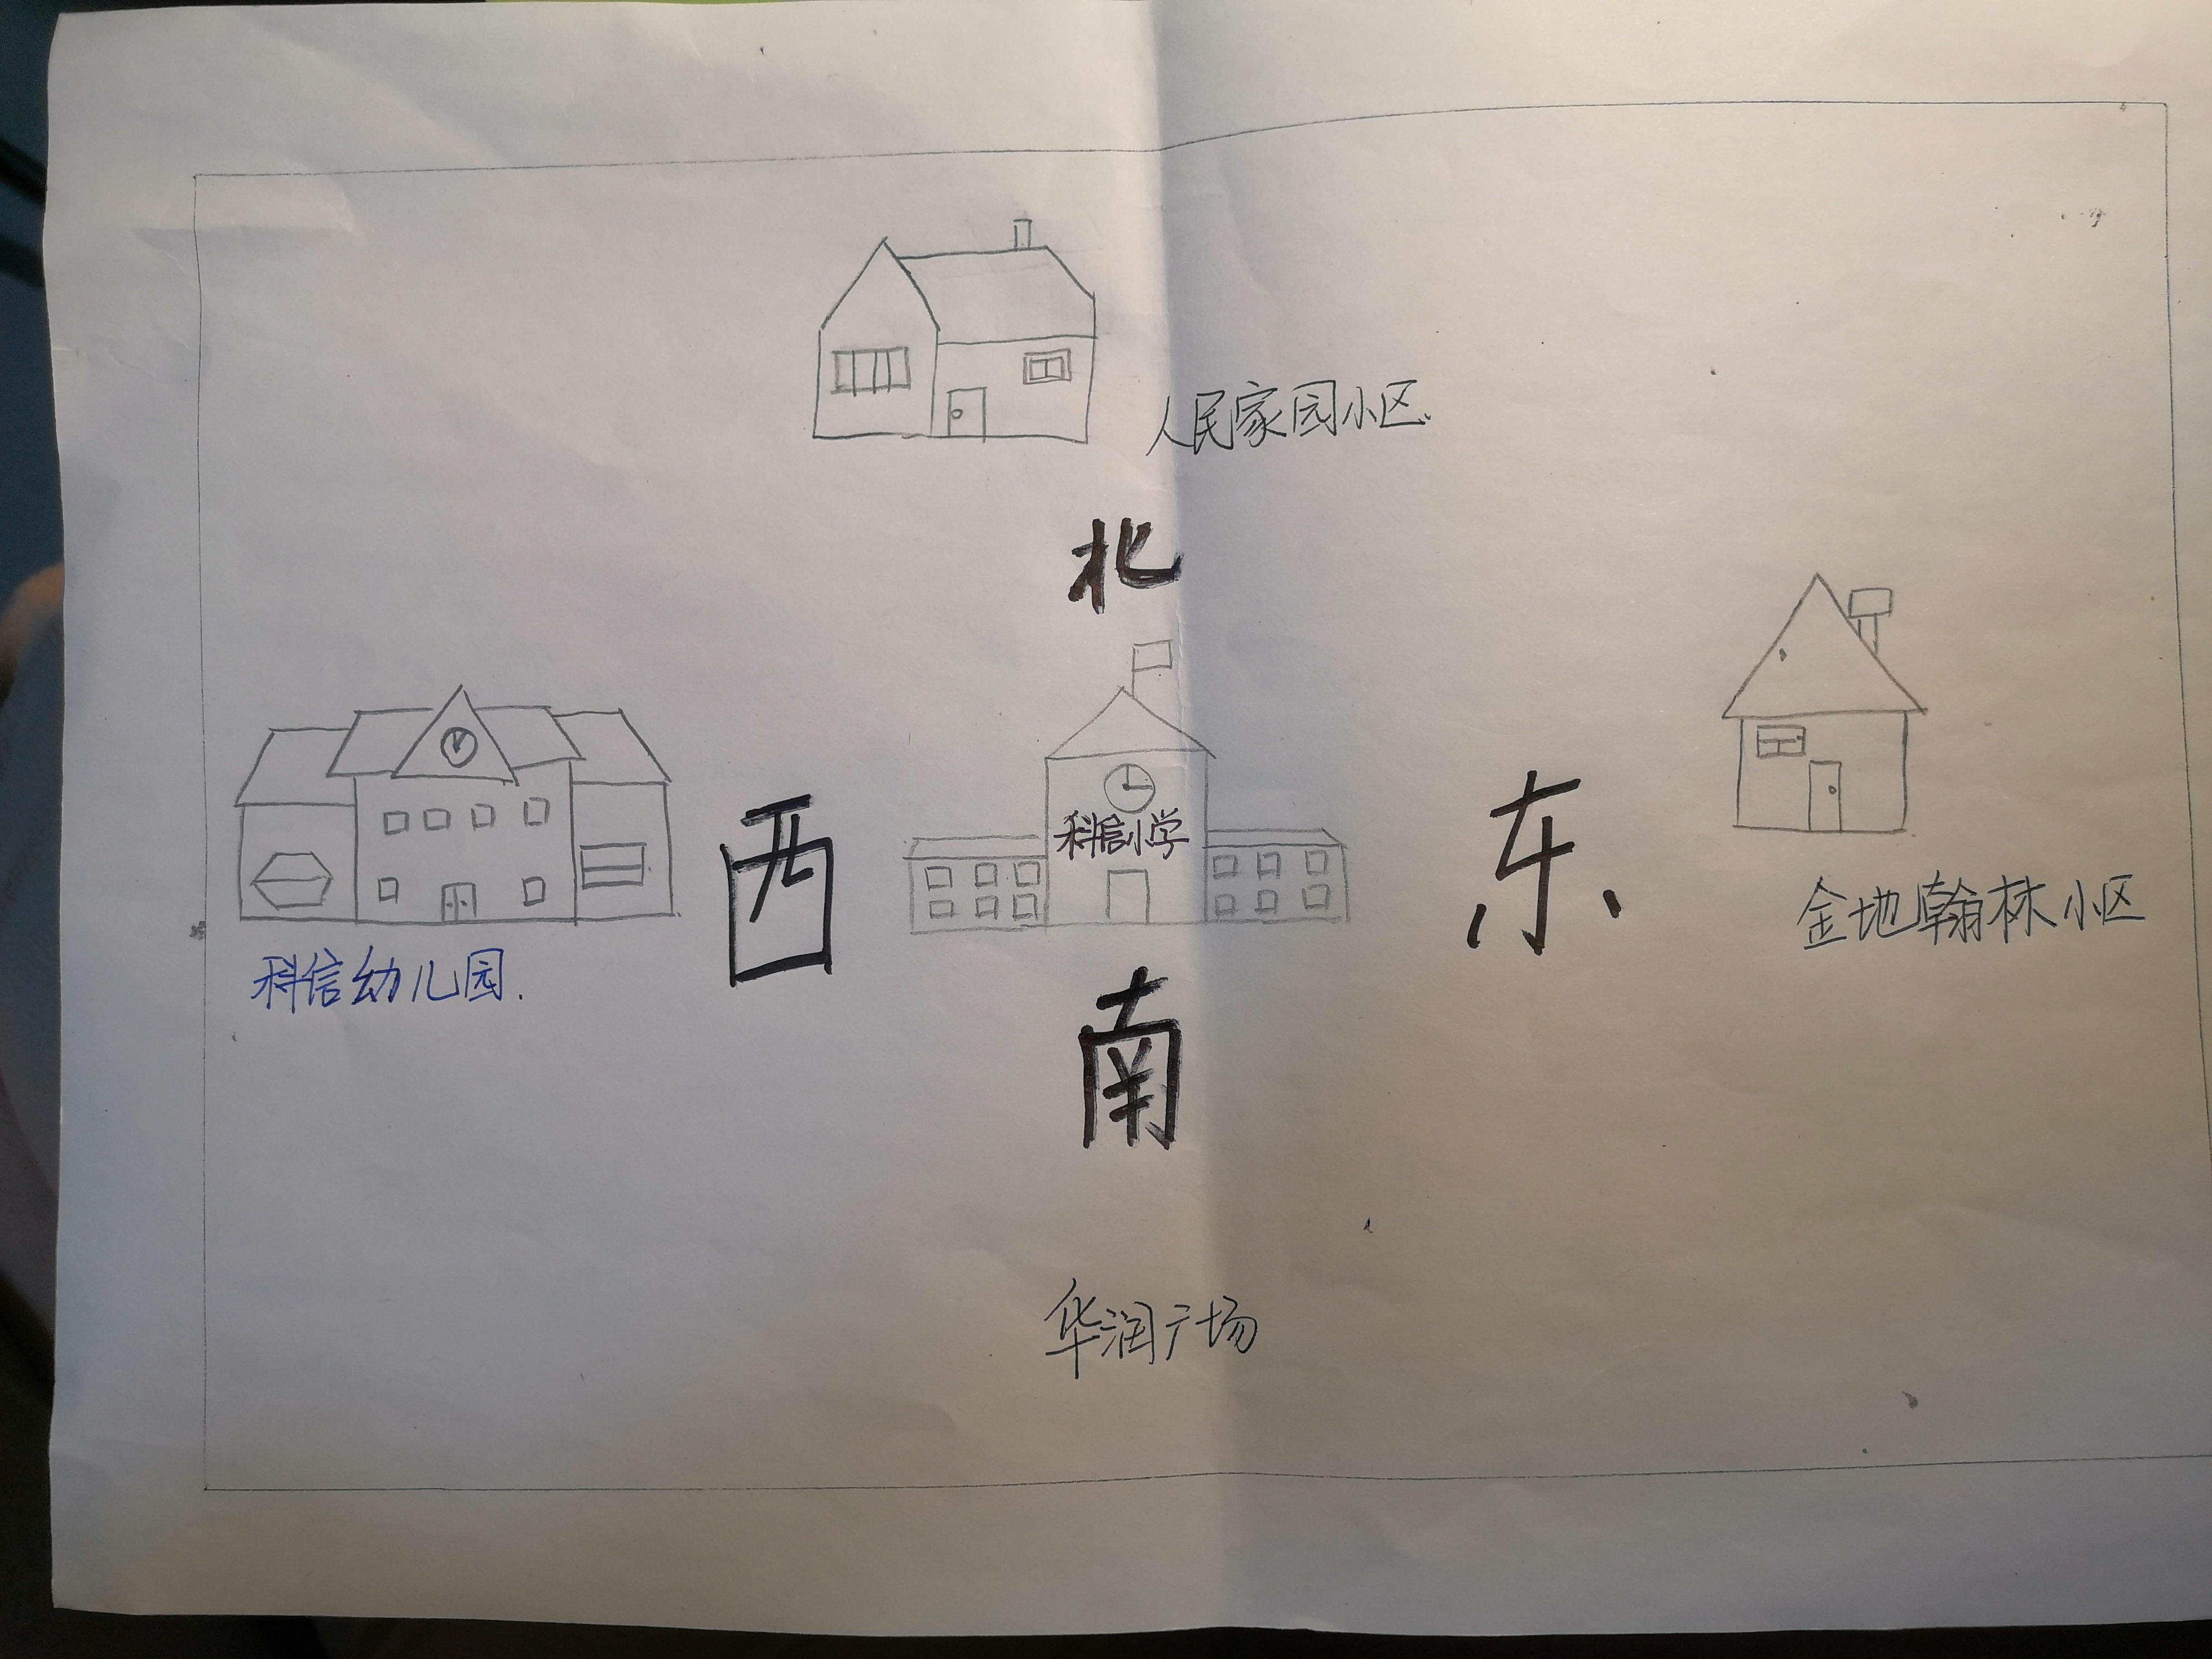 人民家园小区
北
西
科信小学
东
金地翰林小区
科信幼儿园.
南
华润广场